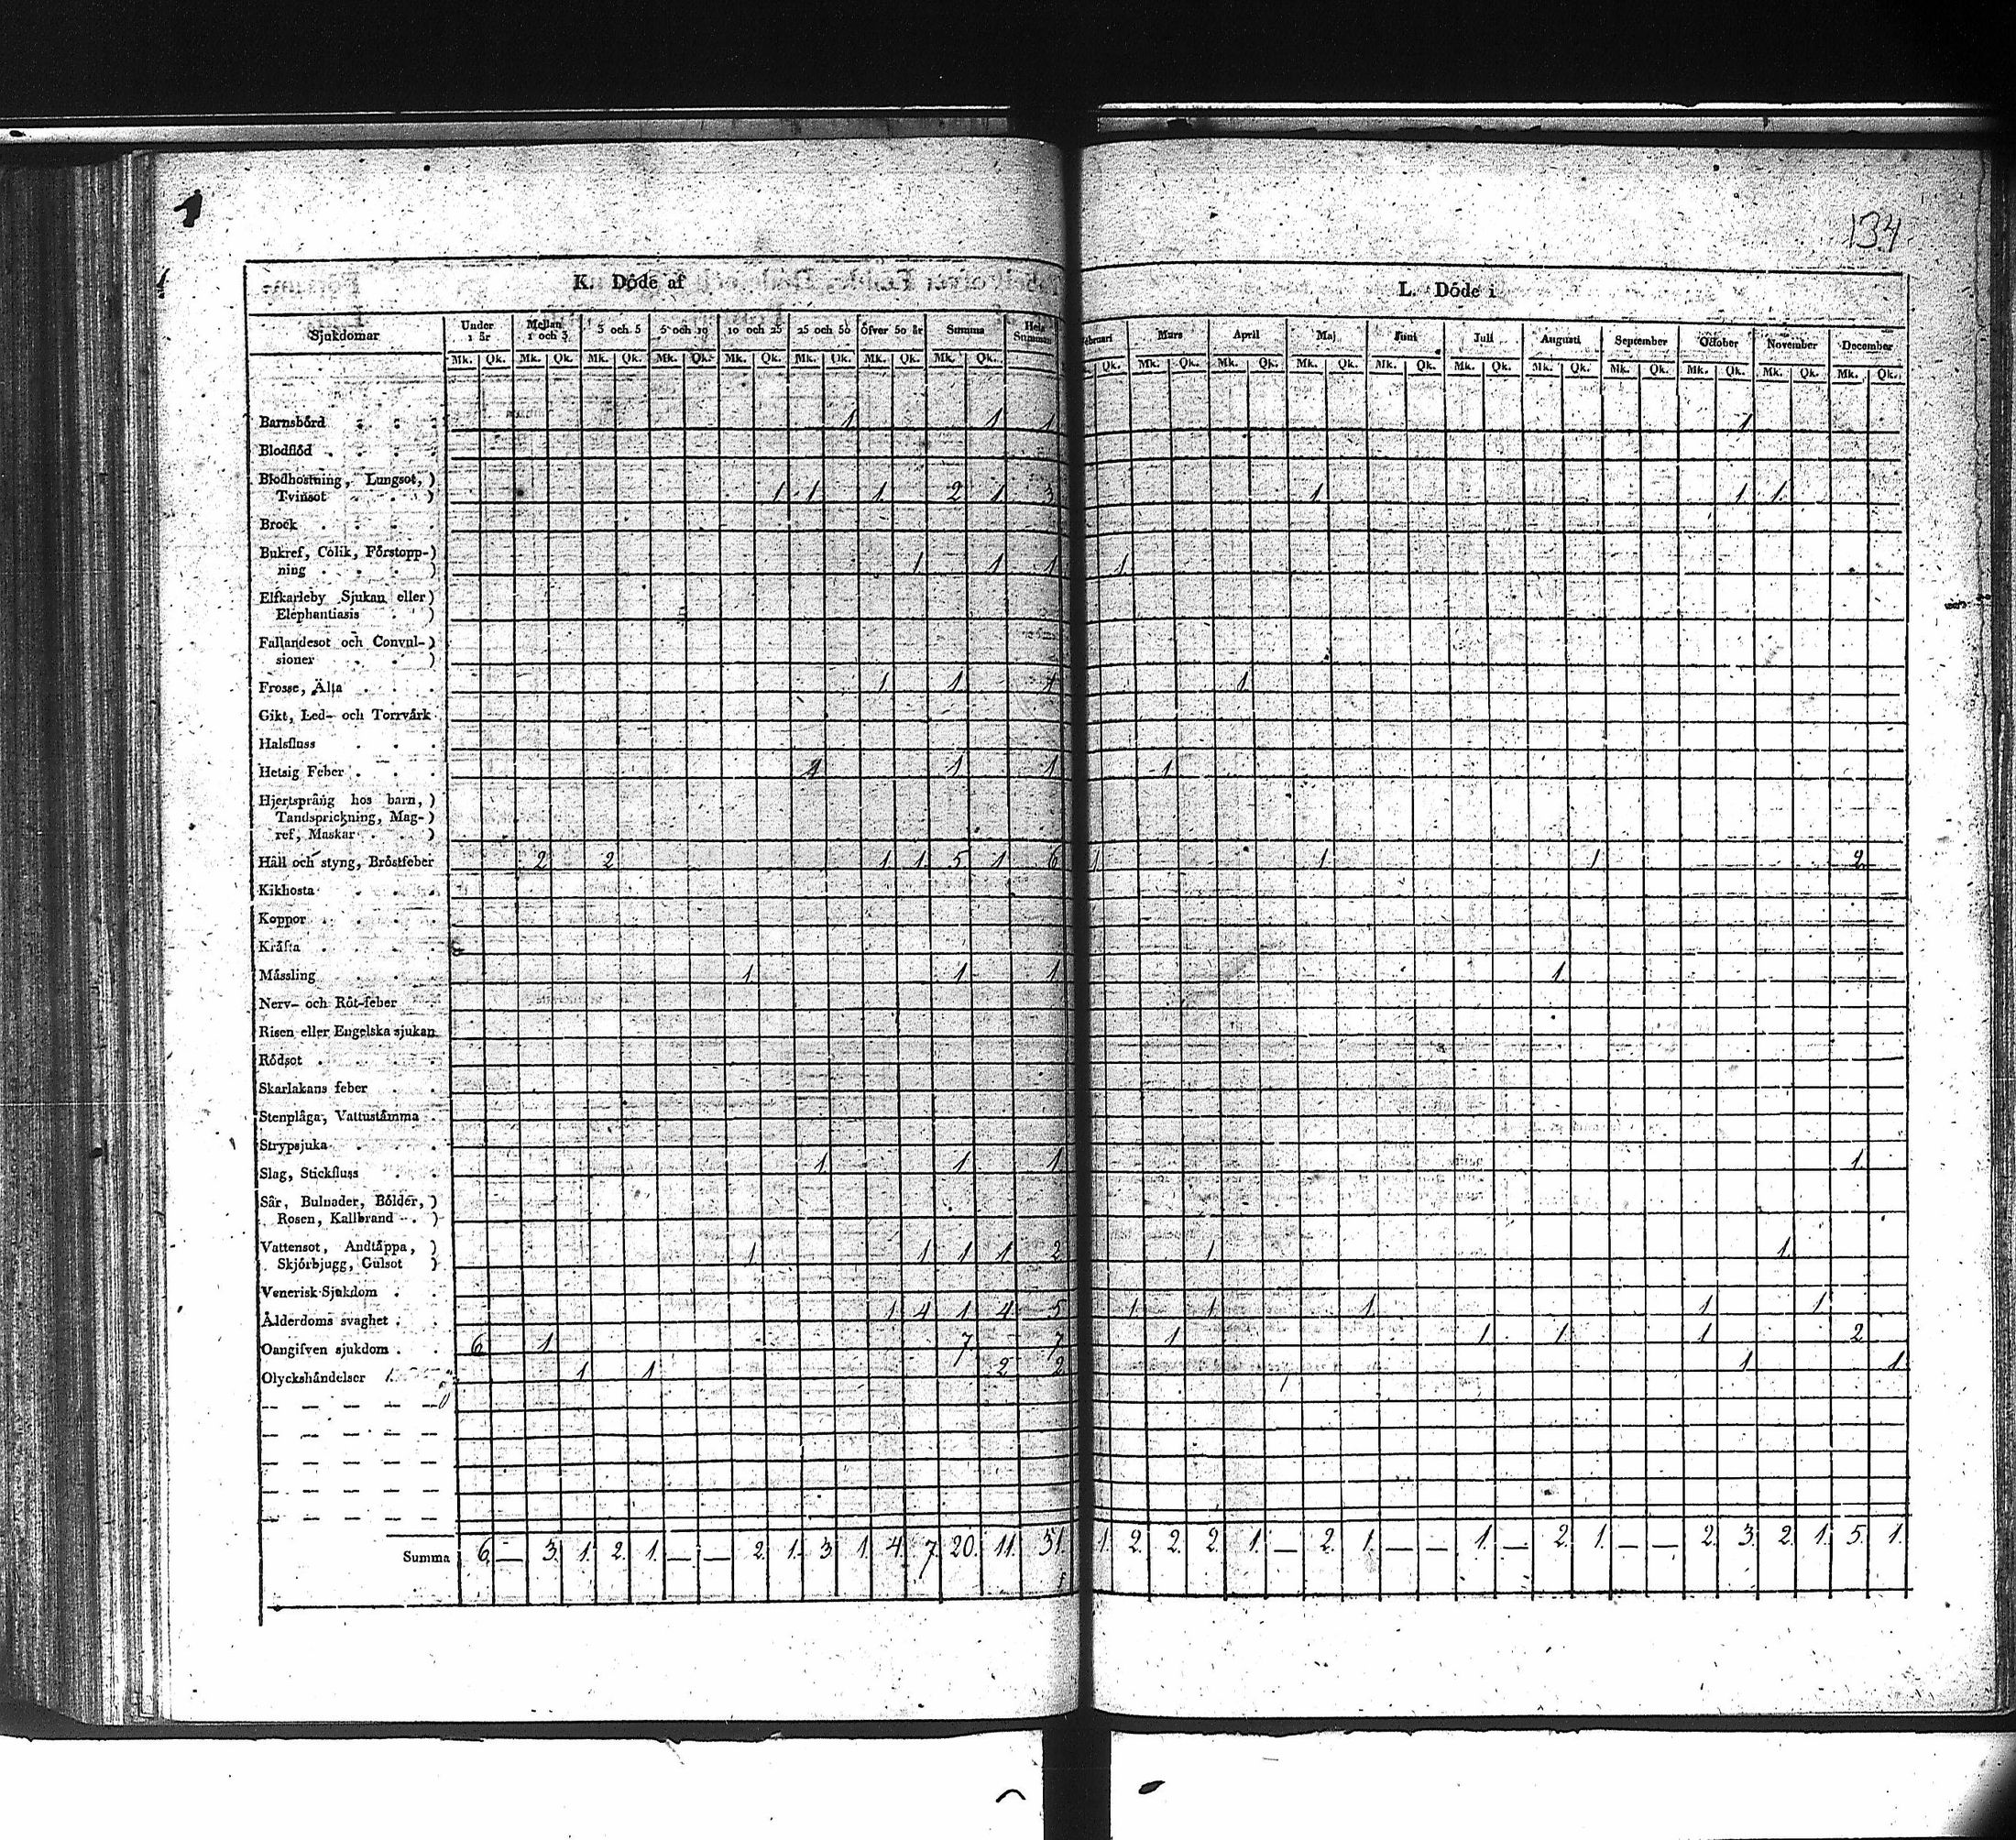 134
K. Döde af
L. Döde i
Sjukdomar Under 1 år Mellan 1 och 3 3 och 5 5 och 10 10 och 25 25 och 50 Öfver 50 år Summa Hela Summan
Februari Mars April Maj Juni Juli Augusti September October November December
Mk. Qk. Mk. Qk. Mk. Qk. Mk. Qk. Mk. Qk. Mk. Qk. Mk. Qk. Mk. Qk.
Qk. Mk. Qk. Mk. Qk. Mk. Qk. Mk. Qk. Mk. Qk. Mk. Qk. Mk. Qk. Mk. Qk. Mk. Qk. Mk. Qk.
Barnsbörd 1 1 1 1
Blodflöd
Blodhostning, Lungsot, )
Tvinsot ) 1 1 1 2 1 3 1 1 1
Brock
Bukref, Colik, Förstopp-)
ning ) 1 1 1 1
Elfkarleby Sjukan eller)
Elephantiasis )
Fallandesot och Convul-)
sioner )
Frosse, Älta 1 1 1 1
Gikt, Led- och Torrvärk
Halsfluss
Hetsig Feber 1 1 1 1
Hjertsprång hos barn, )
Tandsprickning, Mag-)
ref, Maskar )
Håll och styng, Bröstfeber 2 2 1 1 5 1 6 1 1 1 2
Kikhosta
Koppor
Kräfta
Mässling 1 1 1 1
Nerv- och Röt-feber
Risen eller Engelska sjukan
Rödsot
Skarlakans feber
Stenplåga, Vattustämma
Strypsjuka
Slag, Stickfluss 1 1 1 1
Sår, Bulnader, Bölder, )
Rosen, Kallbrand )
Vattensot, Andtäppa, )
Skjörbjugg, Gulsot ) 1 1 1 1 2 1 1
Venerisk Sjukdom
Ålderdoms svaghet 1 4 1 4 5 1 1 1 1 1
Oangifven sjukdom 6 1 7 7 1 1 1 1 2
Olyckshändelser 1 1 2 2 1 1
Summa 6. — 3. 1. 2. 1. — — 2. 1. 3. 1. 4. 7. 20. 11. 31. 1. 2. 2. 2. 1. — 2. 1. — — 1. — 2. 1. — — 2. 3. 2. 1. 5. 1.